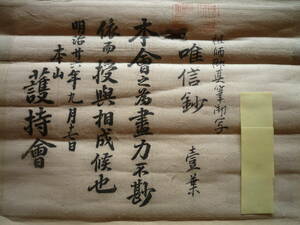 祖師御真筆御写
唯信鈔 壹葉
本會之為盡力不尠
依而授與相成候也
明治廿六年九月十二日
本山
護持會